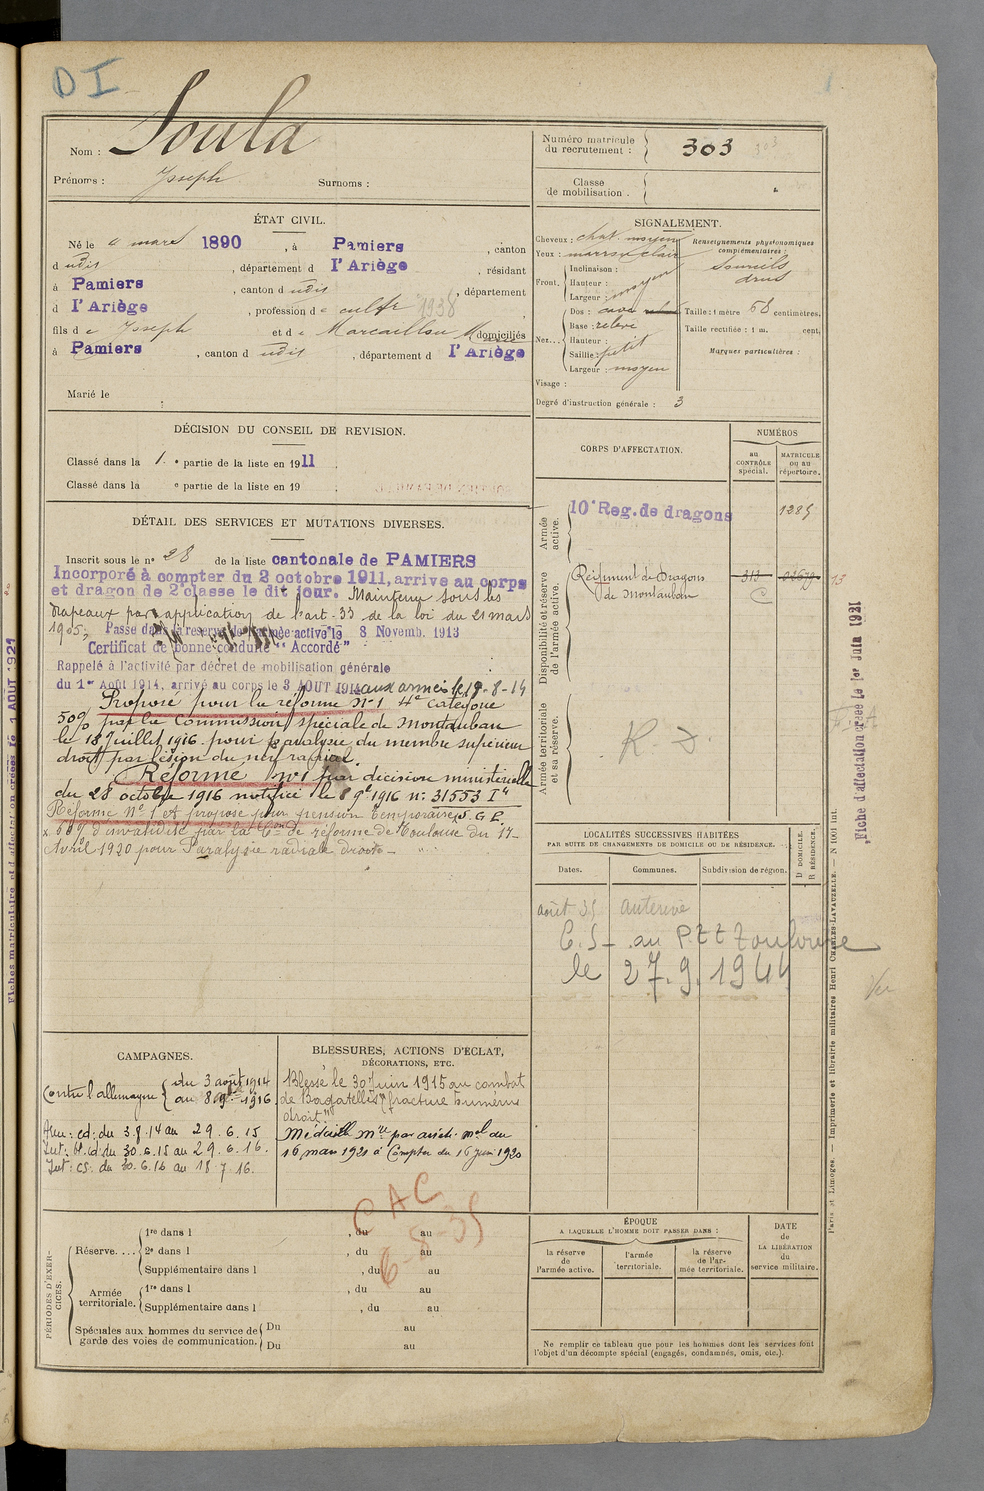 D I
Nom : Soula
Prénoms : Joseph Surnoms :
Numéro matricule du recrutement : 303 303
Classe de mobilisation .
ÉTAT CIVIL.
Né le mars 1890 , à Pamiers , canton
d udit , département d l'Ariège , résidant
à Pamiers , canton d udit , département
d l'Ariège , profession d e cultr 1938
fils d e Joseph et d e Marcaillou M domiciliés
à Pamiers , canton d udit , département d l'Ariège
Marié le
SIGNALEMENT.
Cheveux : chat. moyen
Yeux : marron clair
Front. Inclinaison :
Hauteur :
Largeur : moyen
Nez... Dos : cave
Base : relevé
Hauteur :
Saillie : petit
Largeur : moyen
Visage :
Degré d'instruction générale : 3
Renseignements physionomiques complémentaires :
Sourcils
drus
Taille : 1 mètre 68 centimètres.
Taille rectifiée : 1 m. cent.
Marques particulières :
DÉCISION DU CONSEIL DE REVISION.
Classé dans la 1. e partie de la liste en 1911
Classé dans la e partie de la liste en 19
DÉTAIL DES SERVICES ET MUTATIONS DIVERSES.
Inscrit sous le no 28 de la liste cantonale de PAMIERS
Incorporé à compter du 2 octobre 1911, arrive au corps
et dragon de 2e classe le dit jour. Maintenu sous les
drapeaux par application de l'art. 33 de la loi du 21 mars
1905. Passé dans la réserve de l'armée active le 8 Novemb. 1913
Certificat de bonne conduite "Accordé"
Rappelé à l'activité par décret de mobilisation générale
du 1er Août 1914, arrivé au corps le 3 AOUT 1914 aux armées le 19-8-14
Proposé pour la réforme no 1 4e catégorie
50% par la Commission spéciale de Montauban
le 18 juillet 1916 pour paralysie du membre supérieur
droit par lésion du nerf radial.
Réformé no 1 par décision ministérielle
du 28 octobre 1916 notifiée le 8 9e 1916 no 31553 I"
Réformé No 1 et proposé pour pension temporaire
60% d'invalidité par la Con de réforme de Toulouse du 17
Avril 1920 pour Paralysie radiale droite
CORPS D'AFFECTATION.
NUMÉROS
au CONTRÔLE spécial.
MATRICULE ou au répertoire.
Armée active.
10e Reg. de dragons 1285
Disponibilité et réserve de l'armée active.
Régiment de Dragons 313 02679
de Montauban C
Armée territoriale et sa réserve.
R. D.
LOCALITÉS SUCCESSIVES HABITÉES
PAR SUITE DE CHANGEMENTS DE DOMICILE OU DE RÉSIDENCE.
Dates. Communes. Subdivision de région. D DOMICILE. R RÉSIDENCE.
août 35 auterive
E.S - au P.tt Toulouse
le 27.9.1944
CAMPAGNES.
Contre l'allemagne du 3 août 1914
au 8 9e 1916.
Aux : cd : du 3.8.14 au 29.6.15
Int : bl. cd du 30.6.15 au 29.6.16.
Int : cs : du 30.6.16 au 18.7.16.
BLESSURES, ACTIONS D'ÉCLAT, DÉCORATIONS, ETC.
Blessé le 30 Juin 1915 au combat
de Bagatelle "fracture humerus
droit."
Médaille mre par arrêté mel du
16 mars 1921 à Compter du 16 juin 1920
C A C
6-8-35
PÉRIODES D'EXERCICES.
Réserve.... 1re dans l , du au
2e dans l , du au
Supplémentaire dans l , du au
Armée territoriale. 1re dans l , du au
Supplémentaire dans l , du au
Spéciales aux hommes du service de garde des voies de communication. Du au
Du au
ÉPOQUE
A LAQUELLE L'HOMME DOIT PASSER DANS :
la réserve de l'armée active.
l'armée territoriale.
la réserve de l'armée territoriale.
DATE de LA LIBÉRATION du service militaire.
Ne remplir ce tableau que pour les hommes dont les services font
l'objet d'un décompte spécial (engagés, condamnés, omis, etc.).
Fiche d'affectation créée le 1er Juin 1921
Paris et Limoges. — Imprimerie et librairie militaires Henri CHARLES-LAVAUZELLE. — N 1001 int.
Fiches matriculaire et d'affectation créées le 1 AOUT 1921